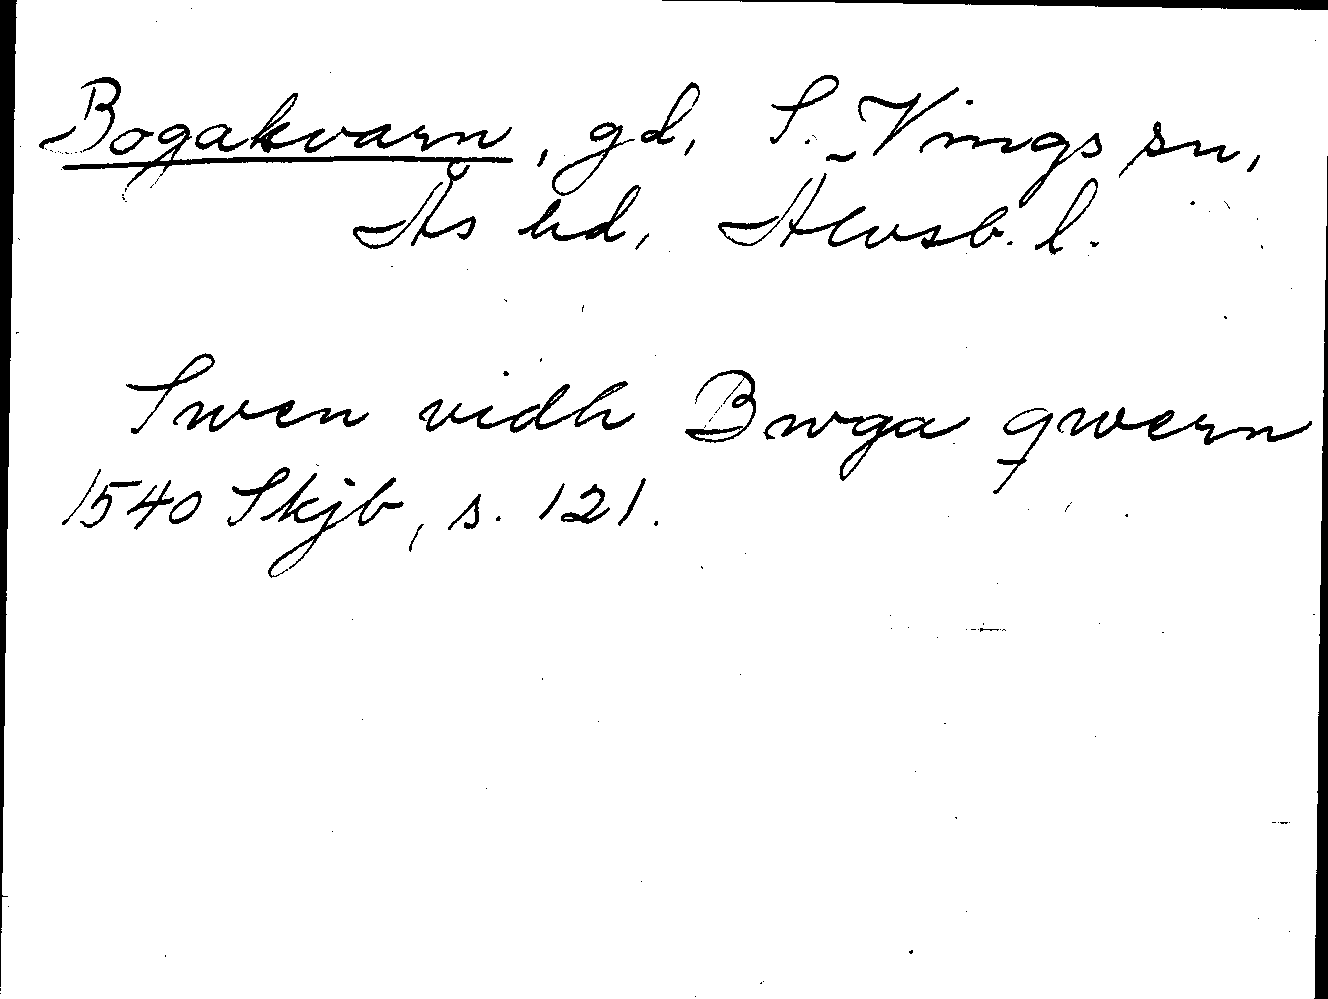 Bogakvarn, gd, S. Vings sn,
Ås hd, Älvsb. l.
Swen vidh Bwga qwern
1540 Skjb, s. 121.